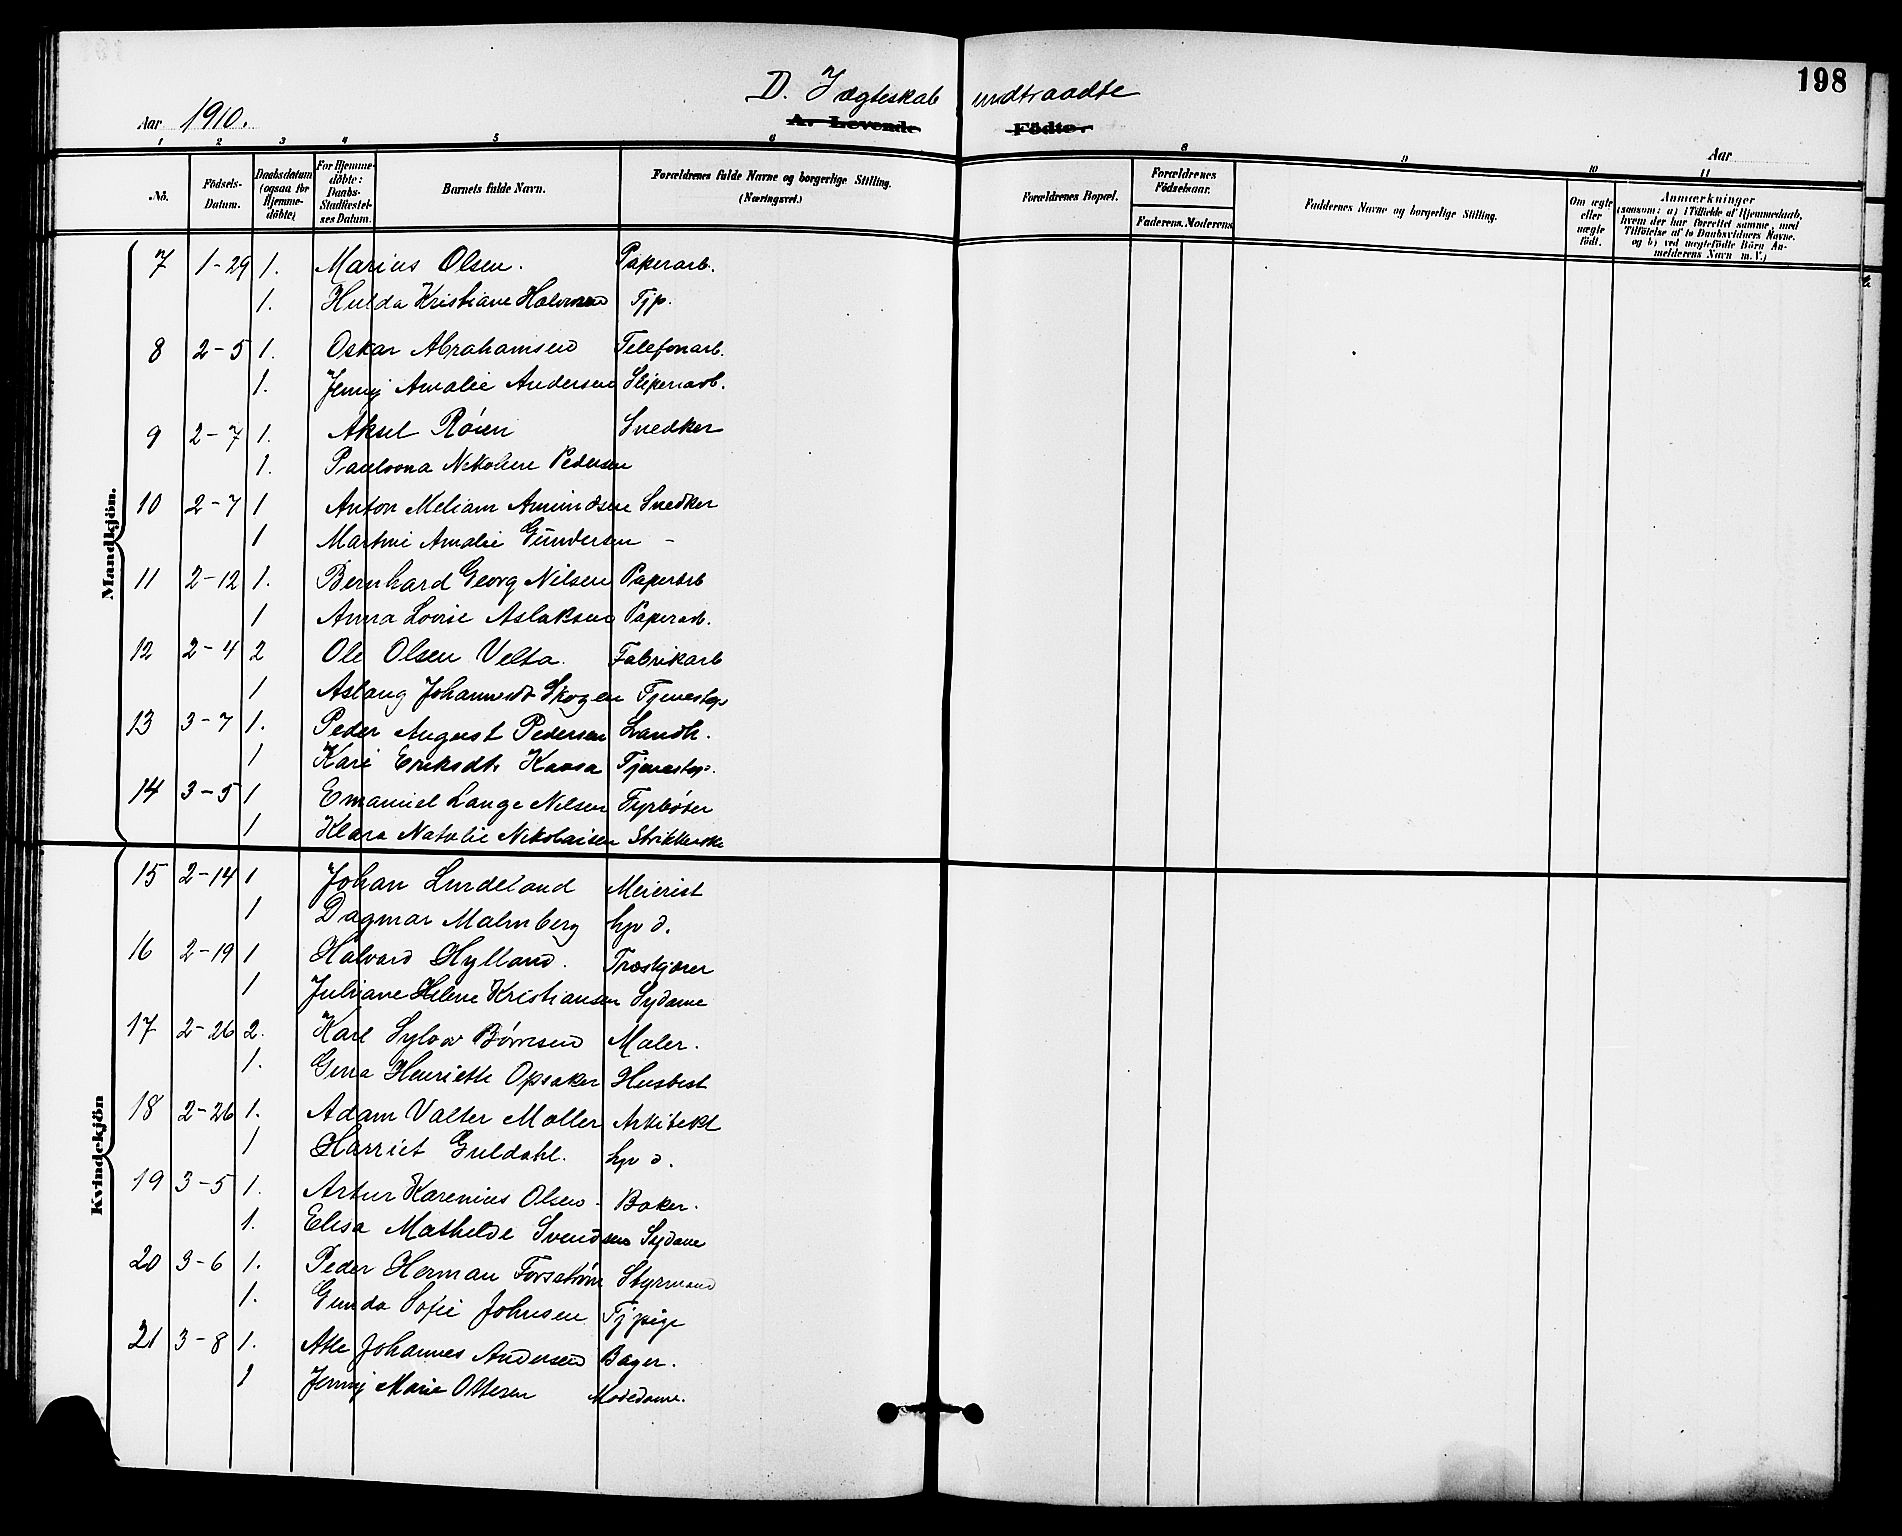 198
D. I ægteskab indtraadte
Aar 1910.
A. Levende Födte.
Aar
1 2 3 4 5 6 8 9 10 11
No.
Födsels-Datum.
Daabsdatum (ogsaa for Hjemmedöbte)
For Hjemmedöbte: Daabs-Stadfæstelses Datum.
Barnets fulde Navn.
Forældrenes fulde Navne og borgerlige Stilling. (Næringsvei.)
Forældrenes Bopæl.
Forældrenes Födselsaar.
Faderens. Moderens.
Faddernes Navne og borgerlige Stilling.
Om ægte eller uægte födt.
Anmærkninger
(saasom: a) i Tilfælde af Hjemmedaab, hvem der har forrettet samme, med Tilföielse af to Daabsvidners Navne, og b) ved uægtefödte Börn Anmelderens Navn m.V.)
Mandkjön.
7 1-29 1. Marius Olsen. Paperarb.
1. Hulda Kristiane Tjp.
8 2-5 1. Oskar Abrahamsen Telefonarb.
1. Jenny Amalie Andersen Sliperiarb.
9 2-7 1. Aksel Röien Snedker
1. Paulovna Nikoline Pedersen
10 2-7 1 Anton Meliam Amundsen Snedker
1 Martine Amalie Gundersen -
11 2-12 1. Bernhard Georg Nilsen Paperarb
1 Anna Lovise Aslaksen Paperarb.
12 2-4 2 Ole Olsen Velta. Fabrikarb
1 Aslaug Johannesdt Skogen Tjenestep
13 3-7 1. Peder August Pedersen Landh.
1 Kari Eriksdt. Kaasa Tjenestep.
14 3-5 1 Emanuel Lange Nilsen Fyrböter
1 Klara Natalie Nikolaisen Strikkerske
Kvindekjön
15 2-14 1 Johan Lindeland Meierist
1 Dagmar Malmberg hjv d.
16 2-19 1 Halvard Hylland. Træskjærer
1 Juliane Helene Kristiansen Sydame
17 2-26 2. Karl Sylow Börresen Maler.
1. Gina Henriette Opsaker Husbest
18 2-26 1. Adam Valter Moller Arkitekt
1 Harriet Guldahl. hjv d.
19 3-5 1. Artur Karenius Olsen. Baker.
1. Elisa Mathilde Svendsen Sydame
20 3-6 1. Peder Herman Forsström Styrmand
1. Gunda Sofie Johnsen Tjpige
21 3-8 1. Atle Johannes Andersen Bager.
1 Jenny Marie Ottesen Modedame.